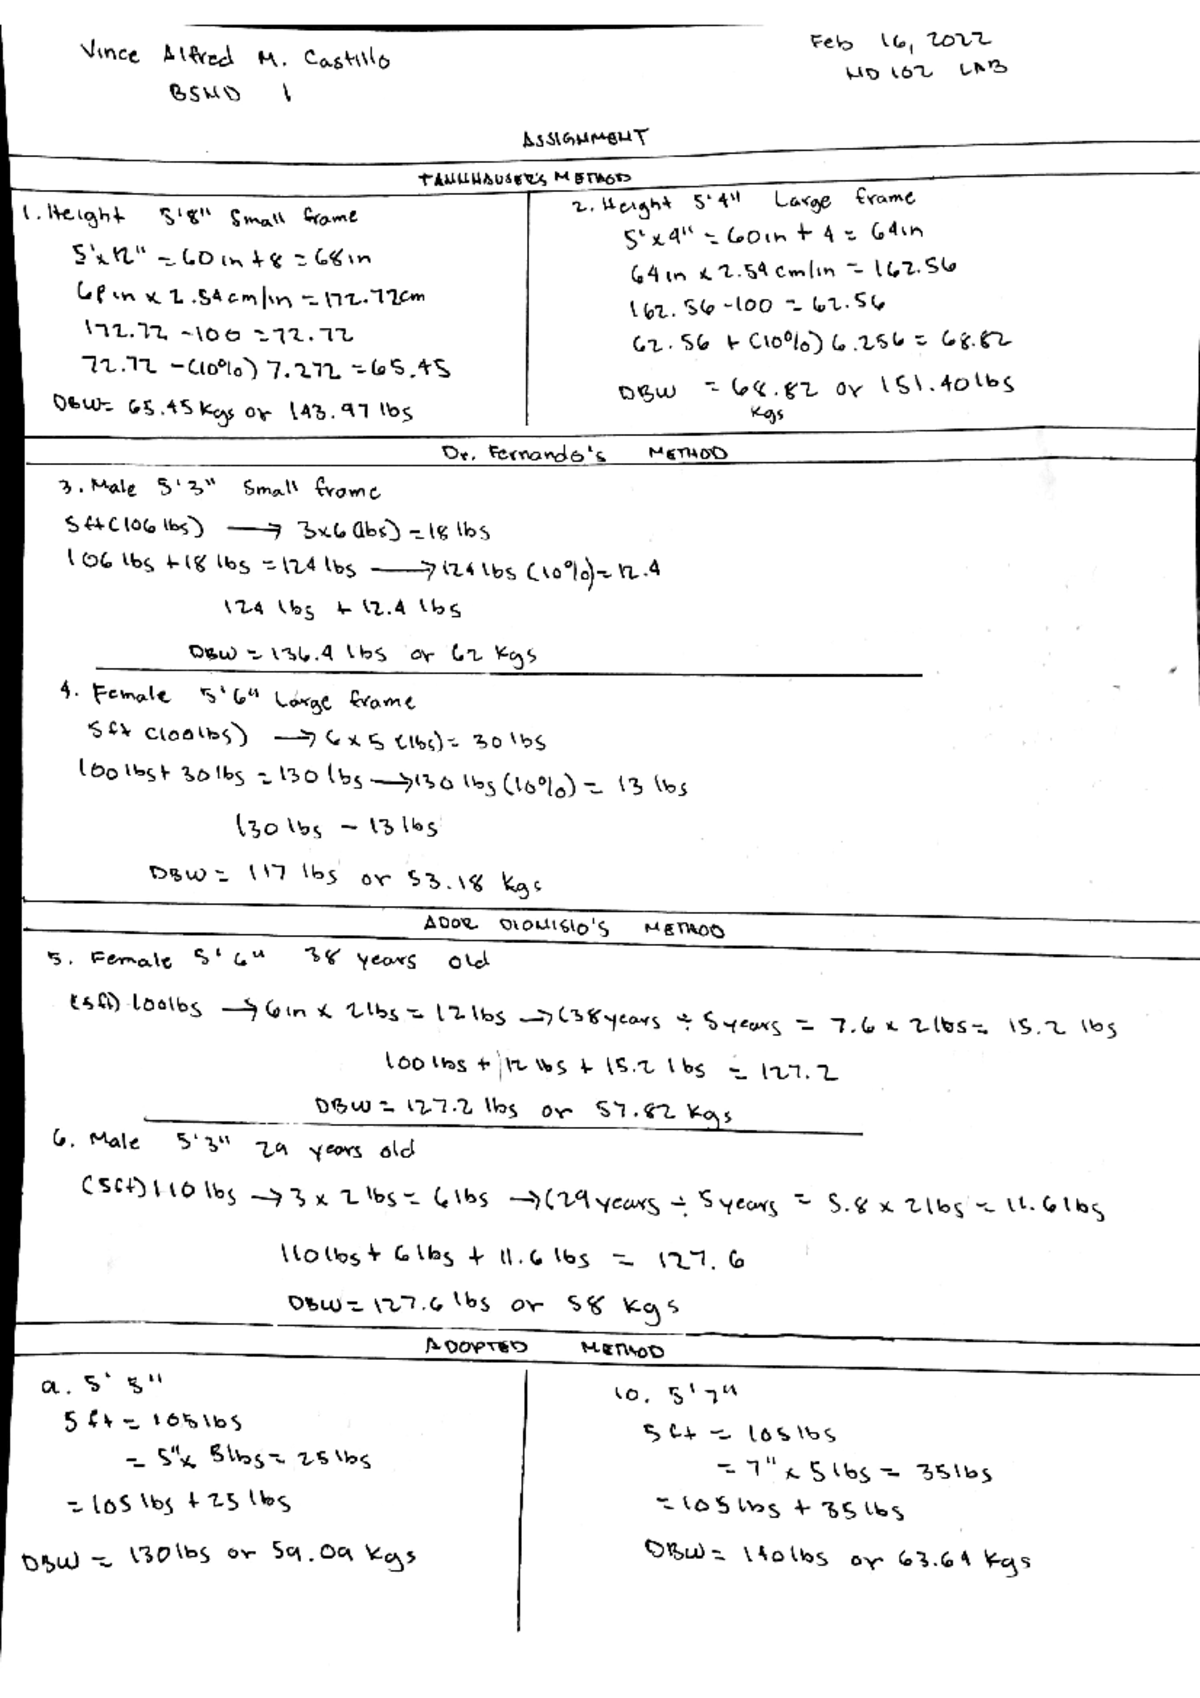 Vince Alfred M. Castillo
BSND 1
Feb 16, 2022
ND 102 LAB
ASSIGNMENT
TANNHAUSER'S METHOD
1. Height 5'8" Small frame
5'x12" = 60in + 8 = 68in
68in x 2.54cm/in = 172.72cm
172.72 - 100 = 72.72
72.72 - (10%) 7.272 = 65.45
DBW = 65.45 Kgs or 143.97 lbs
2. Height 5'4" Large frame
5'x4" = 60in + 4 = 64in
64in x 2.54 cm/in = 162.56
162.56 - 100 = 62.56
62.56 + (10%) 6.256 = 68.82
DBW = 68.82 or 151.40lbs
Kgs
Dr. Fernando's METHOD
3. Male 5'3" Small frame
5ft (106 lbs) → 3x6 (lbs) = 18 lbs
106 lbs + 18 lbs = 124 lbs → 124 lbs (10%) = 12.4
124 lbs + 12.4 lbs
DBW = 136.4 lbs or 62 Kgs
4. Female 5'6" Large frame
5ft (100lbs) → 6 x 5 (lbs) = 30 lbs
100 lbs + 30 lbs = 130 lbs → 130 lbs (10%) = 13 lbs
130 lbs - 13 lbs
DBW = 117 lbs or 53.18 Kgs
ADOR DIONISIO'S METHOD
5. Female 5'6" 38 years old
(5ft) 100lbs → 6in x 2lbs = 12lbs → (38years ÷ 5years = 7.6 x 2lbs = 15.2 lbs
100lbs + 12 lbs + 15.2 lbs = 127.2
DBW = 127.2 lbs or 57.82 Kgs
6. Male 5'3" 29 years old
(5ft) 110 lbs → 3 x 2 lbs = 6lbs → (29 years ÷ 5 years = 5.8 x 2lbs = 11.6 lbs
110lbs + 6lbs + 11.6 lbs = 127.6
DBW = 127.6 lbs or 58 Kgs
ADOPTED METHOD
9. 5'5"
5 ft = 105 lbs
= 5" x 5lbs = 25lbs
= 105 lbs + 25 lbs
DBW = 130lbs or 59.09 Kgs
10. 5'7"
5ft = 105lbs
= 7" x 5lbs = 35lbs
= 105 lbs + 35 lbs
DBW = 140lbs or 63.64 Kgs